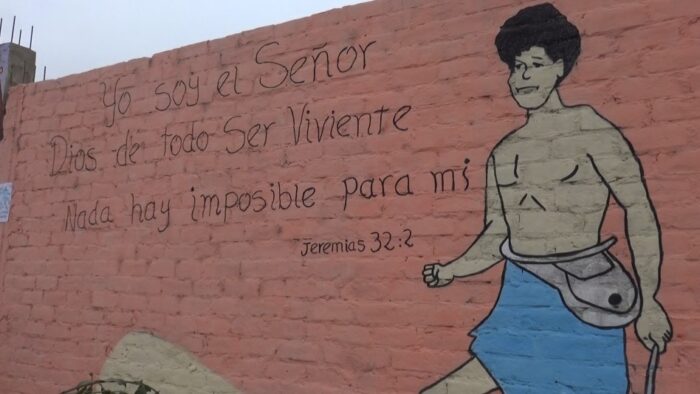 Yo soy el Señor
Dios de todo Ser Viviente
Nada hay imposible para mi
Jeremias 32:2